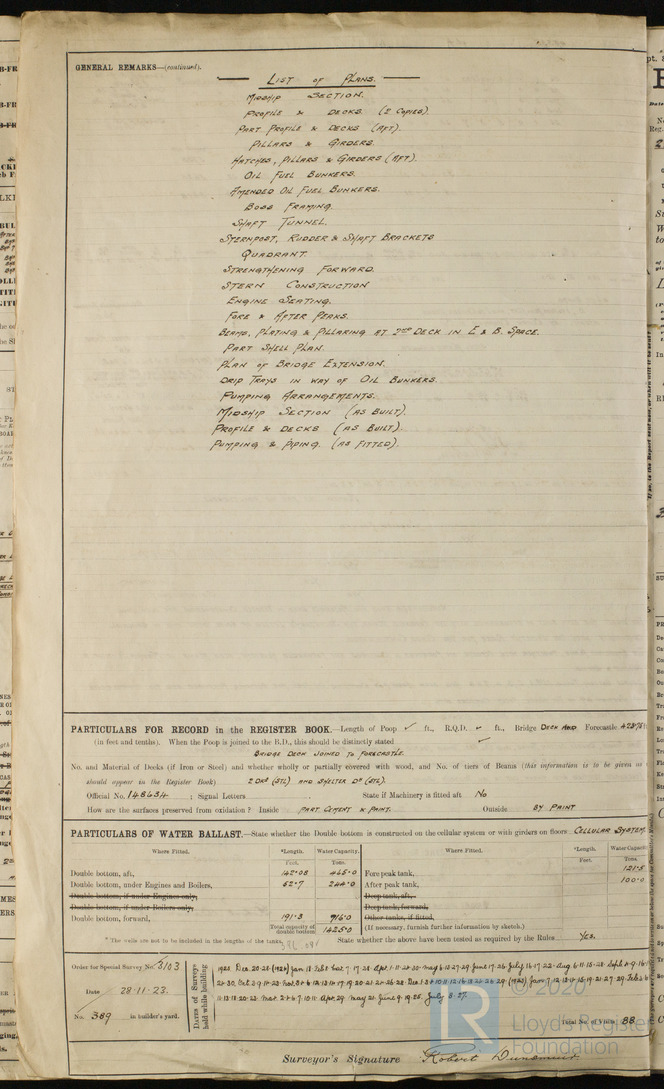 GENERAL REMARKS—(continued).
LIST OF PLANS.
MIDSHIP SECTION.
PROFILE & DECKS (2 COPIES).
PART PROFILE & DECKS (AFT).
PILLARS & GIRDERS.
HATCHES, PILLARS & GIRDERS (AFT).
OIL FUEL BUNKERS.
AMENDED OIL FUEL BUNKERS.
BOSS FRAMING.
SHAFT TUNNEL.
STERNPOST, RUDDER & SHAFT BRACKETS
QUADRANT.
STRENGTHENING FORWARD.
STERN CONSTRUCTION
ENGINE SEATING.
FORE & AFTER PEAKS.
BEAMS, PLATING & PILLARING AT 2ND DECK IN E & B. SPACE.
PART SHELL PLAN.
PLAN OF BRIDGE EXTENSION.
DRIP TRAYS IN WAY OF OIL BUNKERS.
PUMPING ARRANGEMENTS.
MIDSHIP SECTION (AS BUILT).
PROFILE & DECKS (AS BUILT).
PUMPING & PIPING. (AS FITTED).
PARTICULARS FOR RECORD in the REGISTER BOOK.—Length of Poop ✓ ft., R.Q.D. ✓ ft., Bridge DECK AND Forecastle
(in feet and tenths). When the Poop is joined to the B.D., this should be distinctly stated ✓
BRIDGE DECK JOINED TO FORECASTLE.
No. and Material of Decks (if Iron or Steel) and whether wholly or partially covered with wood, and No. of tiers of Beams (this information is to be given as
should appear in the Register Book) 2 DKS (STL) AND SHELTER DK (STL).
Official No. 148634 ; Signal Letters State if Machinery is fitted aft No
How are the surfaces preserved from oxidation? Inside PART CEMENT & PAINT. Outside BY PAINT
PARTICULARS OF WATER BALLAST.—State whether the Double bottom is constructed on the cellular system or with girders on floors CELLULAR SYSTEM.
Where Fitted. *Length. Water Capacity. Where Fitted. *Length. Water Capacity
Feet. Tons. Feet. Tons.
Double bottom, aft, 142·08 465·0 Fore peak tank, 121·5
Double bottom, under Engines and Boilers, 62·7 244·0 After peak tank, 100·0
Double bottom, if under Engines only, Deep tank, aft,
Double bottom, if under Boilers only, Deep tank, forward,
Double bottom, forward, 191·3 716·0 Other tanks, if fitted,
Total capacity of double bottom 1425·0 (If necessary, furnish further information by sketch.)
* The wells are not to be included in the lengths of the tanks. State whether the above have been tested as required by the Rules Yes.
Order for Special Survey No. 3103
Date 28·11·23.
No. 389 in builder's yard.
Dates of Surveys held while building
Total No. of Visits 88
Surveyor's Signature Robert Dunsmuir
© 2020
Lloyd's Register
Foundation